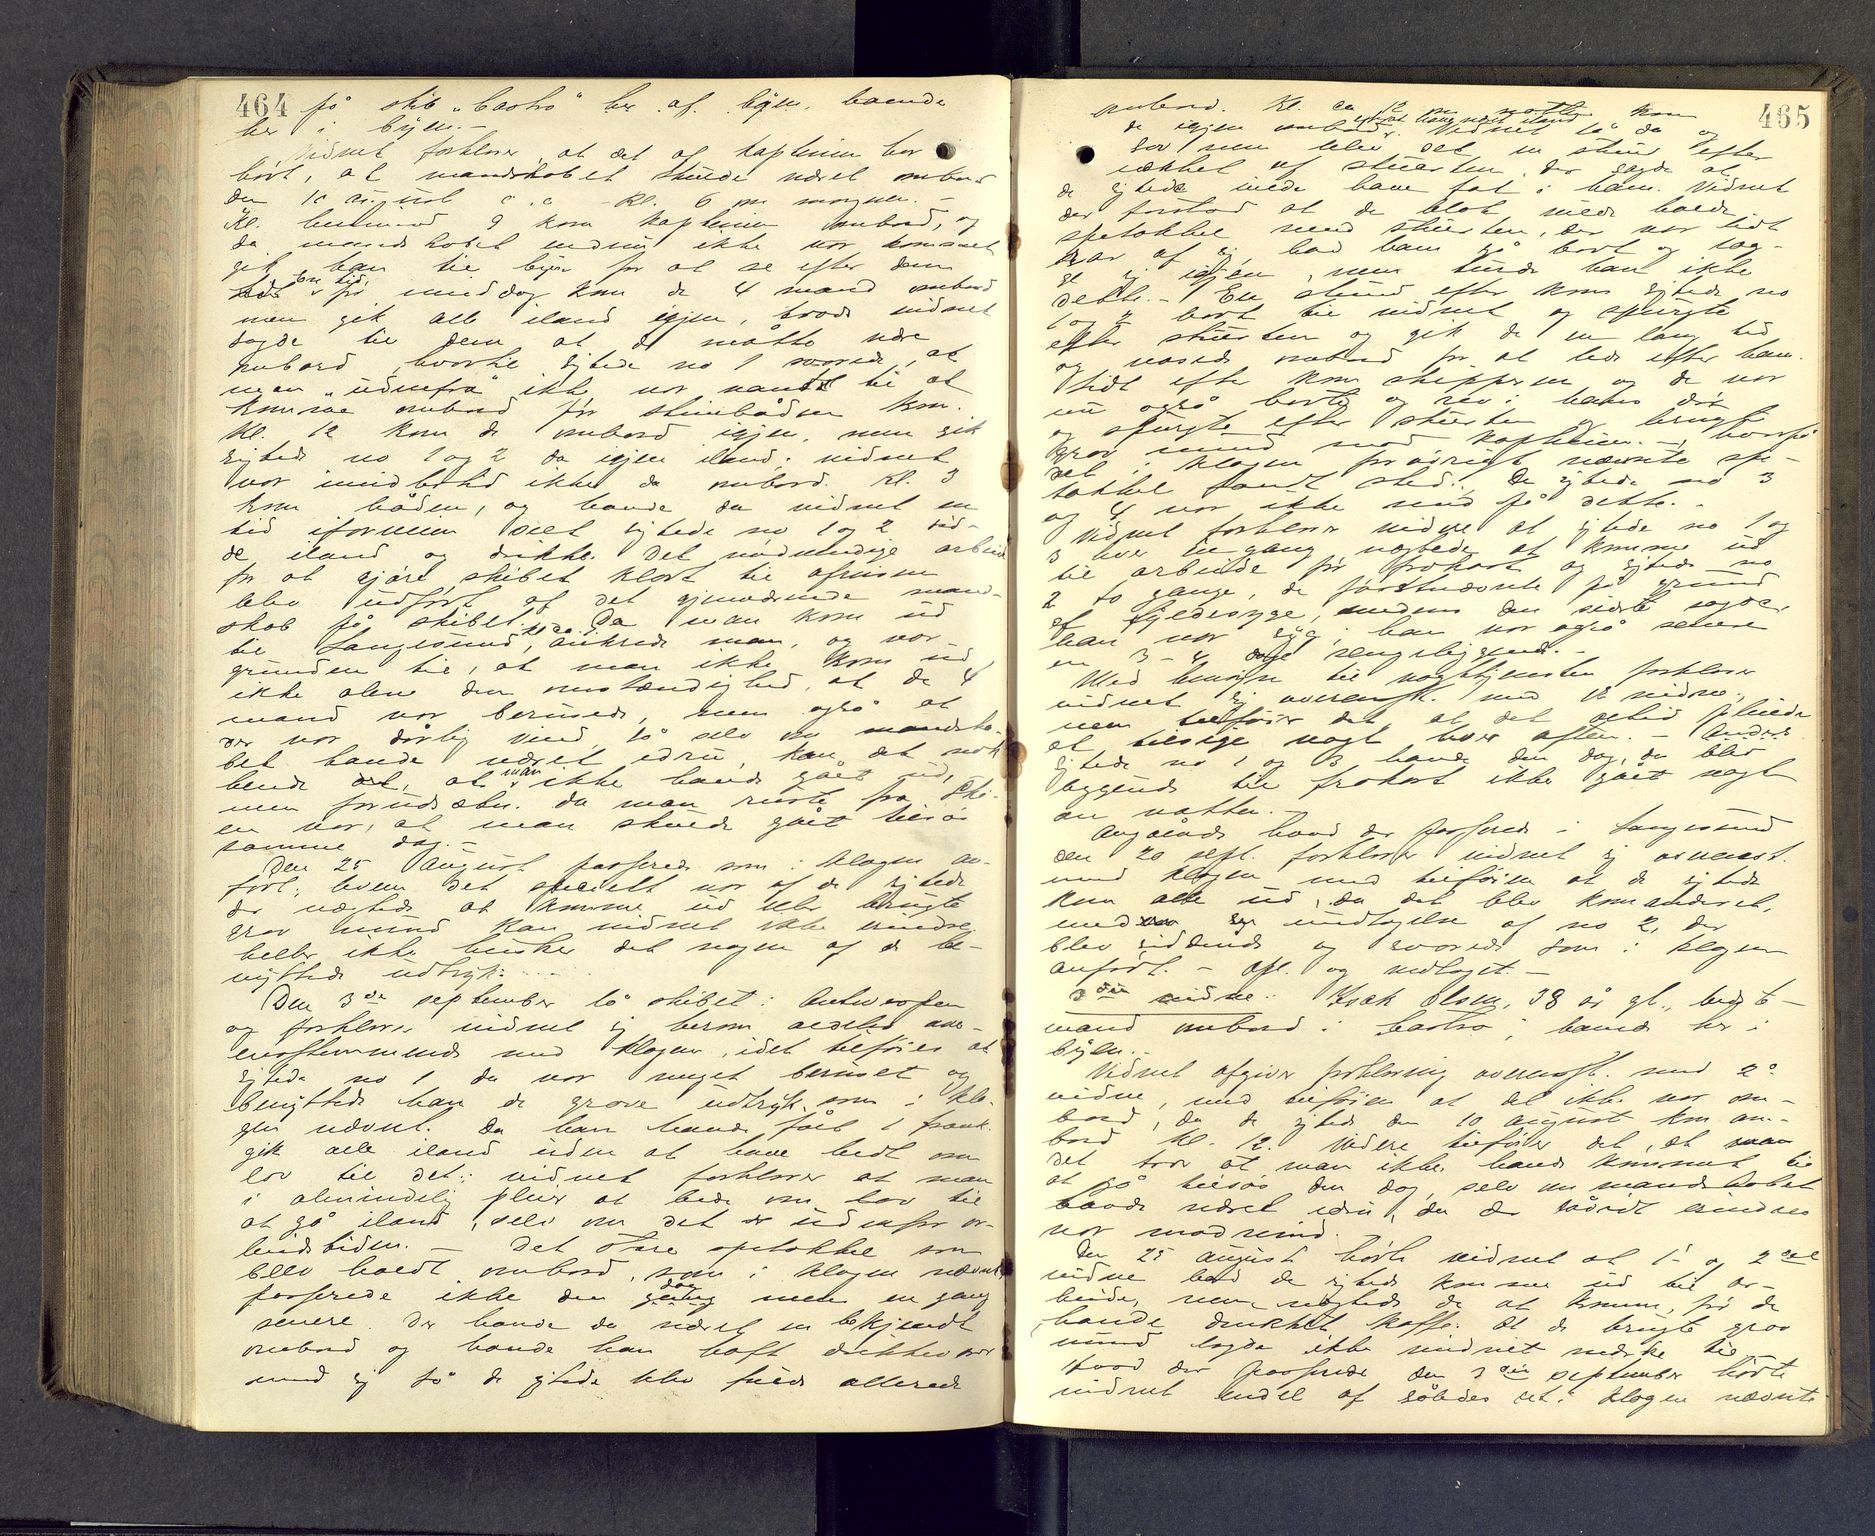 464
på skib "Castro" her af byen, boende
her i byen. –
Vidnet forklarer, at det af kaptainen har
hørt, at mandskabet skulde været ombord
den 10 august d. a. – kl. 6 om morgen. –
Kl. henimod 9 kom kaptainen ombord, og
da mandskabet endnu ikke var kommet
gik han til byen for at se efter dem
en tid før middag kom de 4 mand ombord
men gik alle iland igjen, trods vidnet
sagde til dem at de måtte være
ombord, hvortil sigtede no 1 svarede, at
man "udenfra" ikke var vandt til at
komme ombord før slæbebåden kom.
Kl. 12 kom de ombord igjen, men gik
sigtede no 1 og 2 da igjen iland; vidnet
var imidlertid ikke da ombord. Kl. 3
kom båden, og havde da vidnet en
tid iforveien seet sigtede no 1 og 2 sid-
de iland og drikke. Det nødvendige arbeide
for at gjøre skibet klart til afreisen
blev udført af det gjenværende mand-
skab på skibet. Da man kom ud
til Langesund, ankrede man, og var
grunden til, at man ikke kom ud
ikke alene den omstændighed, at de 4
mand var berusede, men også at
der var dårlig vind, så selv om mandska-
bet havde været edru, kan det nok
hende at man ikke havde gået ud,
men forudsætn. da man reiste fra Ski-
en var, at man skulde gået tilsøs
samme dag. –
Den 25 august passerede som i klagen an-
ført; hvem det specielt var af de sigtede
der nægtede at komme ud eller brugte
grov mund kan vidnet ikke erindre
heller ikke husker det nogen af de be-
nyttede udtryk. –
Den 3de september lå skibet i Antwerpen
og forklarer vidnet sig herom aldeles over-
ensstemmende med klagen, idet tilføies at
sigtede no 1 da var meget beruset og
benyttede han de grove udtryk som i kla-
gen nævnt. Da han havde fået 1 frank
gik alle iland uden at have bedt om
lov til det; vidnet forklarer at man
i almindelig pleier at bede om lov til
at gå iland, selv om det er udenfor ar-
beidstiden. – Det store spetakkel som
blev holdt ombord, som i klagen nævnt
passerede ikke den dag men en gang
senere. Der havde da været en bekjendt
ombord og havde han havt drikkevarer
med sig så de sigtede blev fulde allerede
465
ombord. Kl. ca 12 om natten kom
de igjen ombord efter at have været iland. Vidnet lå da og
sov men blev det en stund efter
vækket af stuerten, der sagde at
de sigtede vilde have fat i ham. Vidnet
der forstod at de blot vilde holde
spetakkel med stuerten, der var lidt
rar af sig, bad ham gå bort og læg-
ge sig igjen, men turde han ikke
dette. – En stund efter kom sigtede no
1 og 2 bort til vidnet og spurgte
efter stuerten og gik de en lang tid
og rasede ombord for at lede efter ham.
Lidt efter kom skipperen og de var
nu også borte og rev i hans dør
og spurgte efter stuerten og brugte
grov mund mod kaptainen. – hvorpå
det i klagen forøvrigt nævnte spe-
takkel fandt sted. De sigtede no 3
og 4 var ikke med på dette. –
Vidnet forklarer videre at sigtede no 1 og
3 hver en gang nægtede at komme ud
til arbeide før frokost og sigtede no
2 to gange, de førstnævnte på grund
af fyldesyge, medens den sidste sagde,
han var syg; han var også senere
en 3–4 dage sengeliggende. –
Med hensyn til vagttjenesten forklarer
vidnet sig overensst. med 1ste vidne.
men tilføier det at det altid pleiede
at tilsige vagt hver aften. –
Sigtede no 1 og 3 havde den dag, de blev
liggende til frokost ikke gået vagt
om natten. –
Angående hvad der passerede i Langesund
den 20 sept. forklarer vidnet sig overensst.
med klagen med tilføien at de sigtede
kom alle ud, da det blev kommanderet,
med undtagelse af no 2, der
blev siddende og svarede som i klagen
anført. – Opl. og vedtaget. –
3die vidne: Isak Olsen, 38 år gl., beste-
mand ombord i Castro, boende her i
byen. –
Vidnet afgiver forklaring overensst. med 2det
vidne, med tilføien at det ikke var om-
bord, da de sigtede den 10 august kom om-
bord kl. 12. Videre tilføier det, at man
det tror at man ikke havde kommet til
at gå tilsøs den dag, selv om mandskabet
havde været edru, da der såvidt erindres
var modvind.
Den 25 august hørte vidnet at 1ste og 2det
vidne bad de sigtede komme ud til ar-
beide, men nægtede de at komme, før de
havde drukket kaffe. At de brugte grov
mund lagde ikke vidnet mærke til.
Hvad der passerede den 3die september hørte
vidnet endel af således det i klagen nævnte